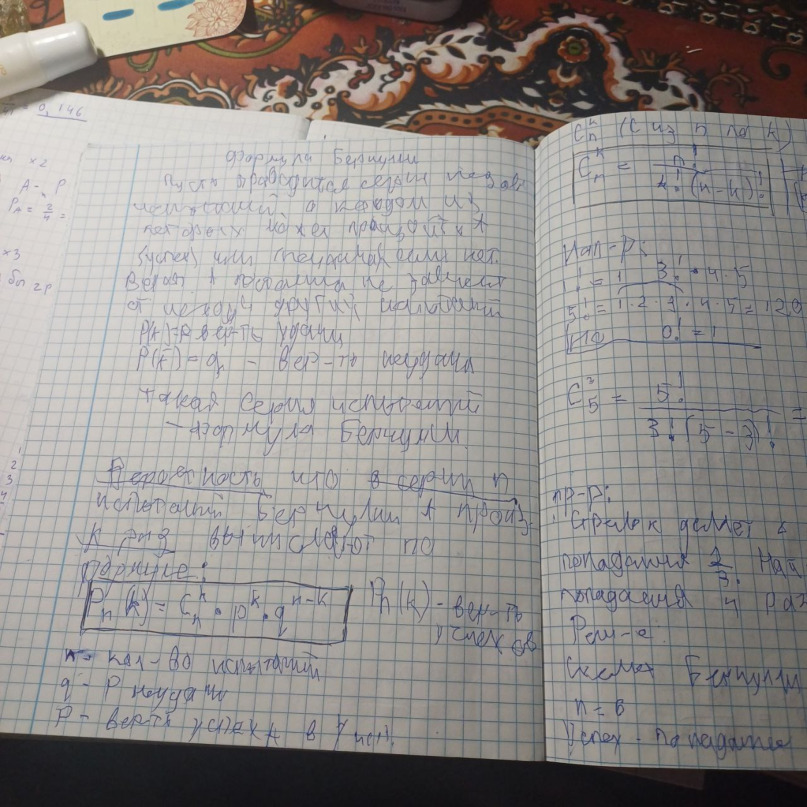 = 0,146
x2
A - P
P_A = 2/4 =
x3
Формула Бернулли
Пусть проводится серия незав
испытаний в каждом из
которых может произойти A
(успех) или (неудача) если нет.
Вероят. A постоянна не зависит
от исхода других испытаний
P(A)=P вер-ть удачи
P(Ā) = q - вер-ть неудачи
такая серия испытаний
- формула Бернулли.
Вероятность что в серии n
испытаний Бернулли A произ.
k раз вычисляют по
формуле:
P_n(k) = C_n^k · p^k · q^{n-k} P_n(k) - вер-ть
успехов
n - кол-во испытаний
q - P неудачи
P - верть успеха A в 1 исп.
C_n^k (C из n по k)
C_n^k = n! / k!(n-k)!
Нап-р:
1! = 1 3! · 4 · 5
5! = 1 · 2 · 3 · 4 · 5 = 120
0! = 1
C_5^3 = 5! / 3!(5-3)! =
пр-р:
Стрелок делает
попадания 2/3. Най
попадания 4 раз
Реш-е:
схема Бернулли
n = 6
Успех - попадание